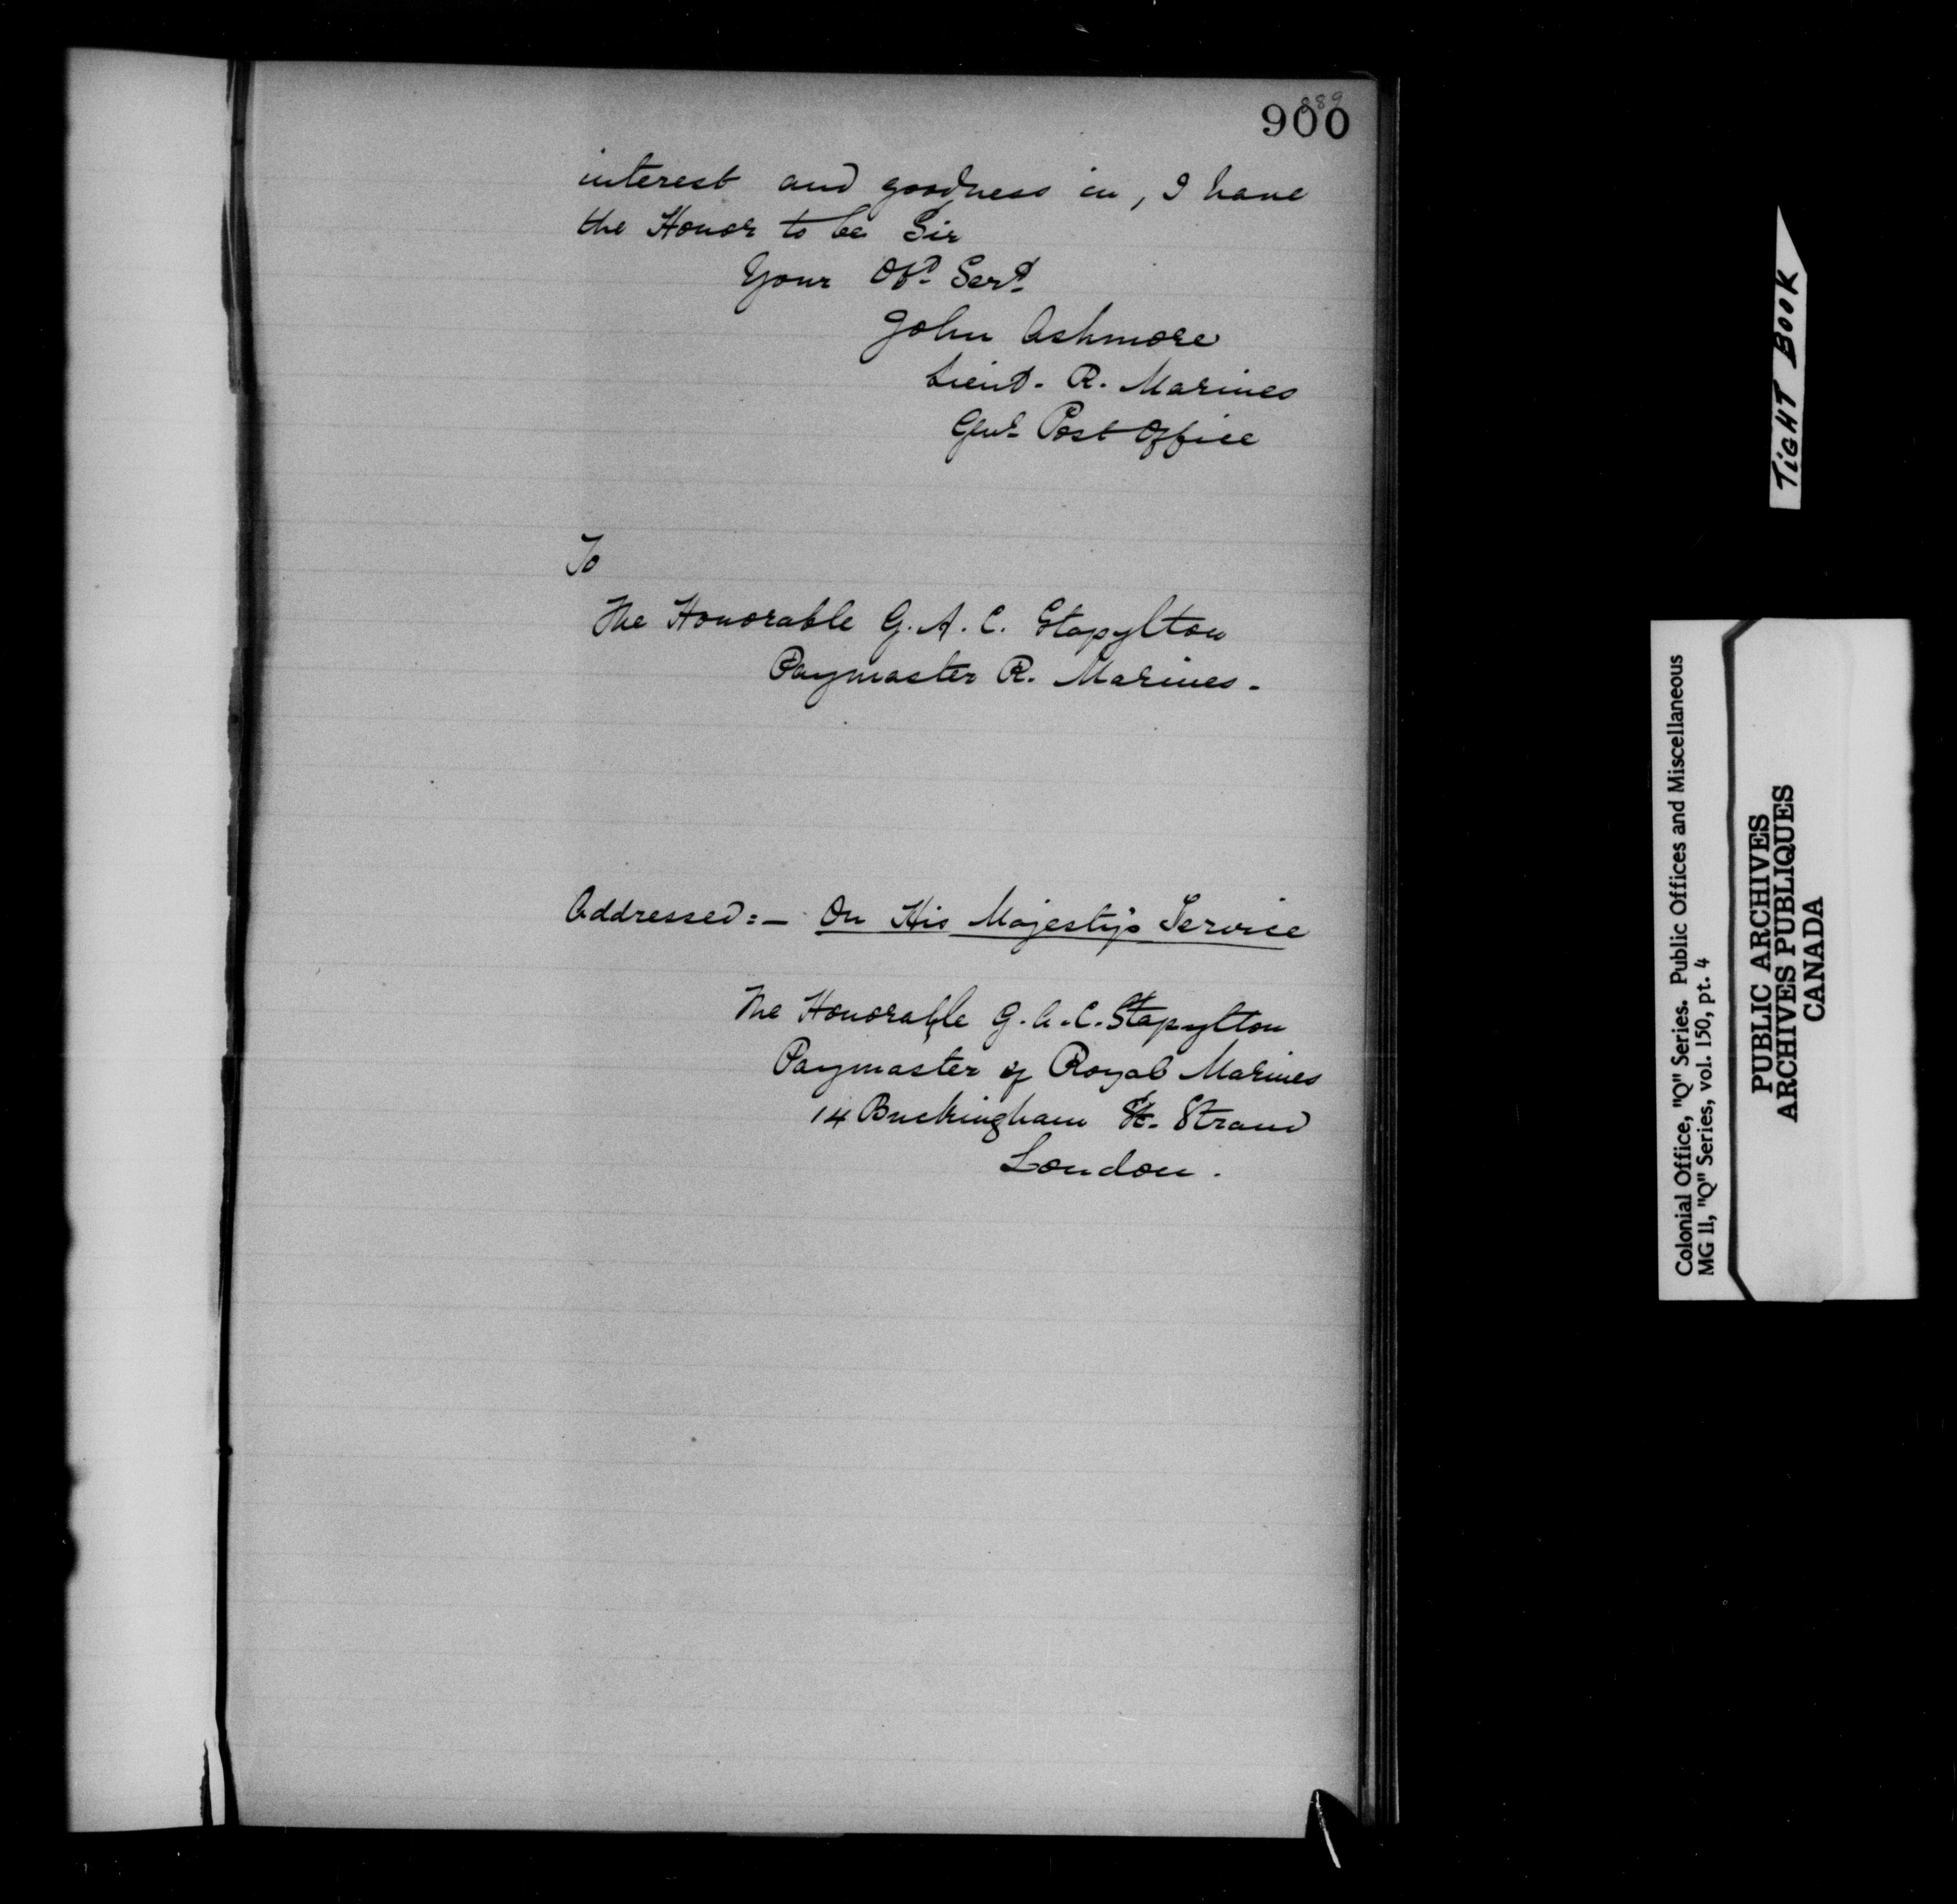 889
900
interest and goodness in, I have
the Honor to be Sir
Your Obt. Servt.
John Ashmore
Lieut. R. Marines
Genl. Post Office
To
The Honorable G. A. C. Stapylton
Paymaster R. Marines.
Addressed:- On His Majesty's Service
The Honorable G. A. C. Stapylton
Paymaster of Royal Marines
14 Buckingham St. Strand
London.
TIGHT BOOK
Colonial Office, "Q" Series. Public Offices and Miscellaneous
MG 11, "Q" Series, vol. 150, pt. 4
PUBLIC ARCHIVES
ARCHIVES PUBLIQUES
CANADA